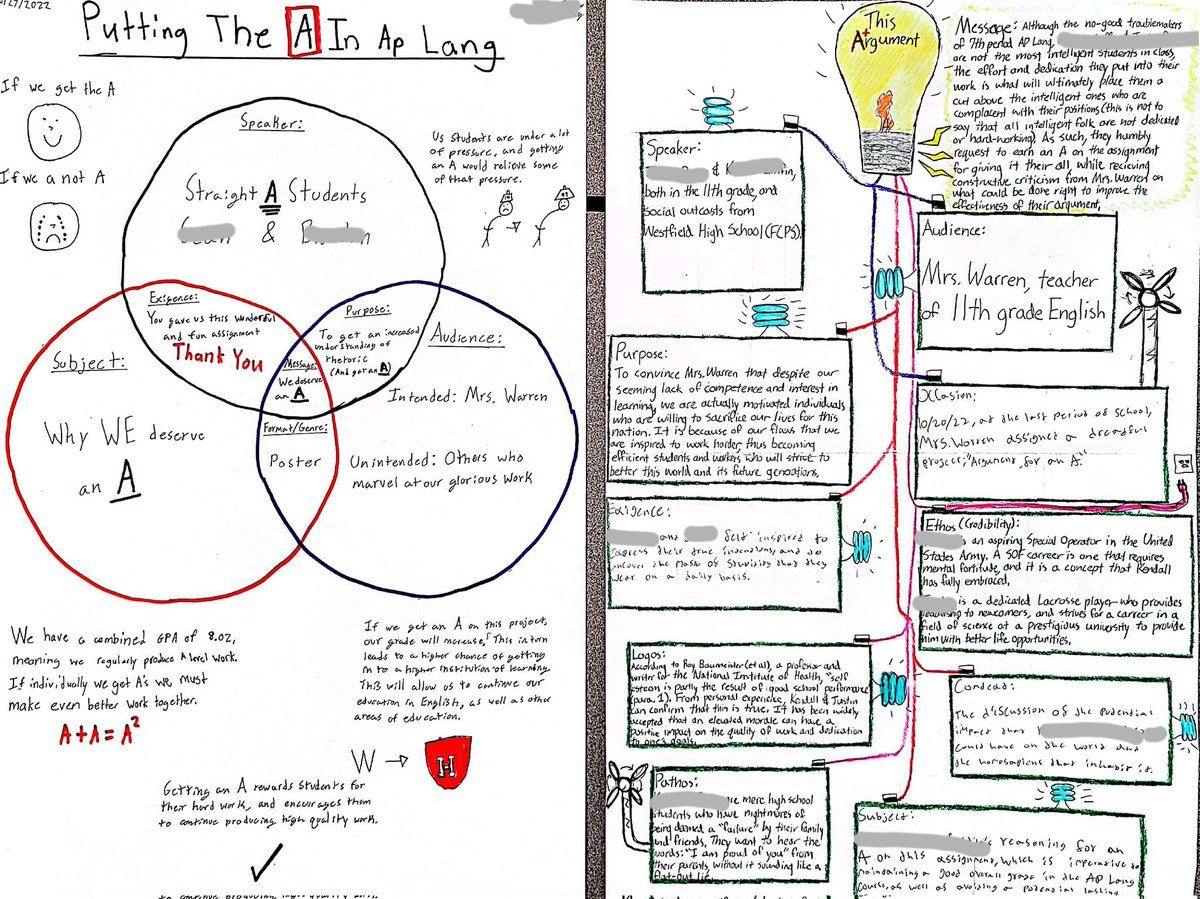 27/2022
Putting The A In Ap Lang
If we get the A
If we a not A
Us students are under a lot
of pressure, and getting
an A would relieve some
of that pressure.
Speaker:
Straight A Students
&
Exigence:
You gave us this wonderful
and fun assignment
Thank You
Purpose:
To get an increased
understanding of
rhetoric
(And get an A)
Message:
We deserve
an A
Subject:
Why WE deserve
an A
Audience:
Intended: Mrs. Warren
Unintended: Others who
marvel at our glorious work
Format/Genre:
Poster
We have a combined GPA of 8.02,
meaning we regularly produce A level work.
If individually we get A's we must
make even better work together.
A+A=A²
If we get an A on this project,
our grade will increase! This in turn
leads to a higher chance of getting
in to a higher institution of learning.
This will allow us to continue our
education in English, as well as other
areas of education.
W → H
Getting an A rewards students for
their hard work, and encourages them
to continue producing high quality work.
This
A+rgument
Message: Although the no-good troublemakers
of 7th period AP Lang,
are not the most intelligent students in class,
the effort and dedication they put into their
work is what will ultimately place them a
cut above the intelligent ones who are
complacent with their positions (this is not to
say that all intelligent folk are not dedicated
or hard-working). As such, they humbly
request to earn an A on the assignment
for giving it their all, while reciving
constructive criticism from Mrs. Warred on
what could be done right to improve the
effectiveness of their argument.
Speaker:
&
both in the 11th grade, and
social outcasts from
Westfield High School (FCPS)
Audience:
Mrs. Warren, teacher
of 11th grade English
Purpose:
To convince Mrs. Warren that despite our
seeming lack of competence and interest in
learning, we are actually motivated individuals
who are willing to sacrifice our lives for this
nation. It is because of our flaws that we
are inspired to work harder, thus becoming
efficient students and workers, who will strive to
better this world and its future generations.
Occasion:
10/20/22, at the last period of school,
Mrs. Warren assigned a dreadful
project; "Argument for an A."
Exigence:
and felt inspired to
express their true intentions and to
uncover the mask of stupidity that they
wear on a daily basis.
Ethos (Credibility):
is an aspiring Special Operator in the United
States Army. A SOF carreer is one that requires
mental fortitude, and it is a concept that Kendall
has fully embraced.
is a dedicated Lacrosse player who provides
leadership to newcomers, and strives for a carreer in a
field of science at a prestigious university to provide
him with better life opportunities.
Logos:
According to Roy Baumeister (et al), a professor and
writer for the National Institute of Health, "self
esteem is partly the result of good school performance
(para. 1). From personal experience, Kendall & Justin
can confirm that this is true. It has been widely
accepted that an elevated morale can have a
positive impact on the quality of work and dedication
to one's goals.
Context:
The discussion of the potential
impact that
could have on the world and
the homosapiens that inhabit it.
Pathos:
are mere high school
students who have nightmares of
being deemed a "failure" by their family
and friends. They want to hear the
words: "I am proud of you" from
their parents, without it sounding like a
flat-out lie.
Subject:
reasoning for an
A on this assignment, which is imperative to
maintaining a good overall grade in the AP Lang
course, as well as avoiding a potential lasting